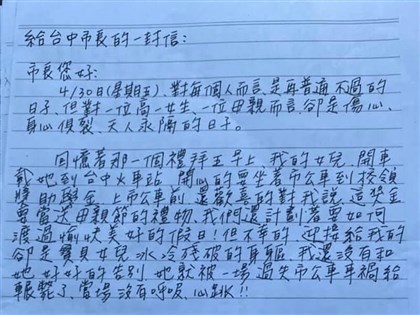 給台中市長的一封信:
市長您好:
4/30日(星期五),對每個人而言,是再普通不過的
日子,但對一位高一女生、一位母親而言,卻是傷心、
身心俱裂、天人永隔的日子。
回憶著那一個禮拜五早上,我的女兒,開車
載她到台中火車站,開心的要坐著市公車到校領
獎助學金,上市公車前,還歡喜的對我說,這獎金
要當送母親節的禮物,我們還計劃著要如何
渡過愉快美好的假日!但不幸的,迎接給我的
卻是寶貝女兒冰冷殘破的身軀,我還沒有和
她好好的告別,她就被一場過失市公車車禍給
輾斃了,當場沒有呼吸、心跳!!